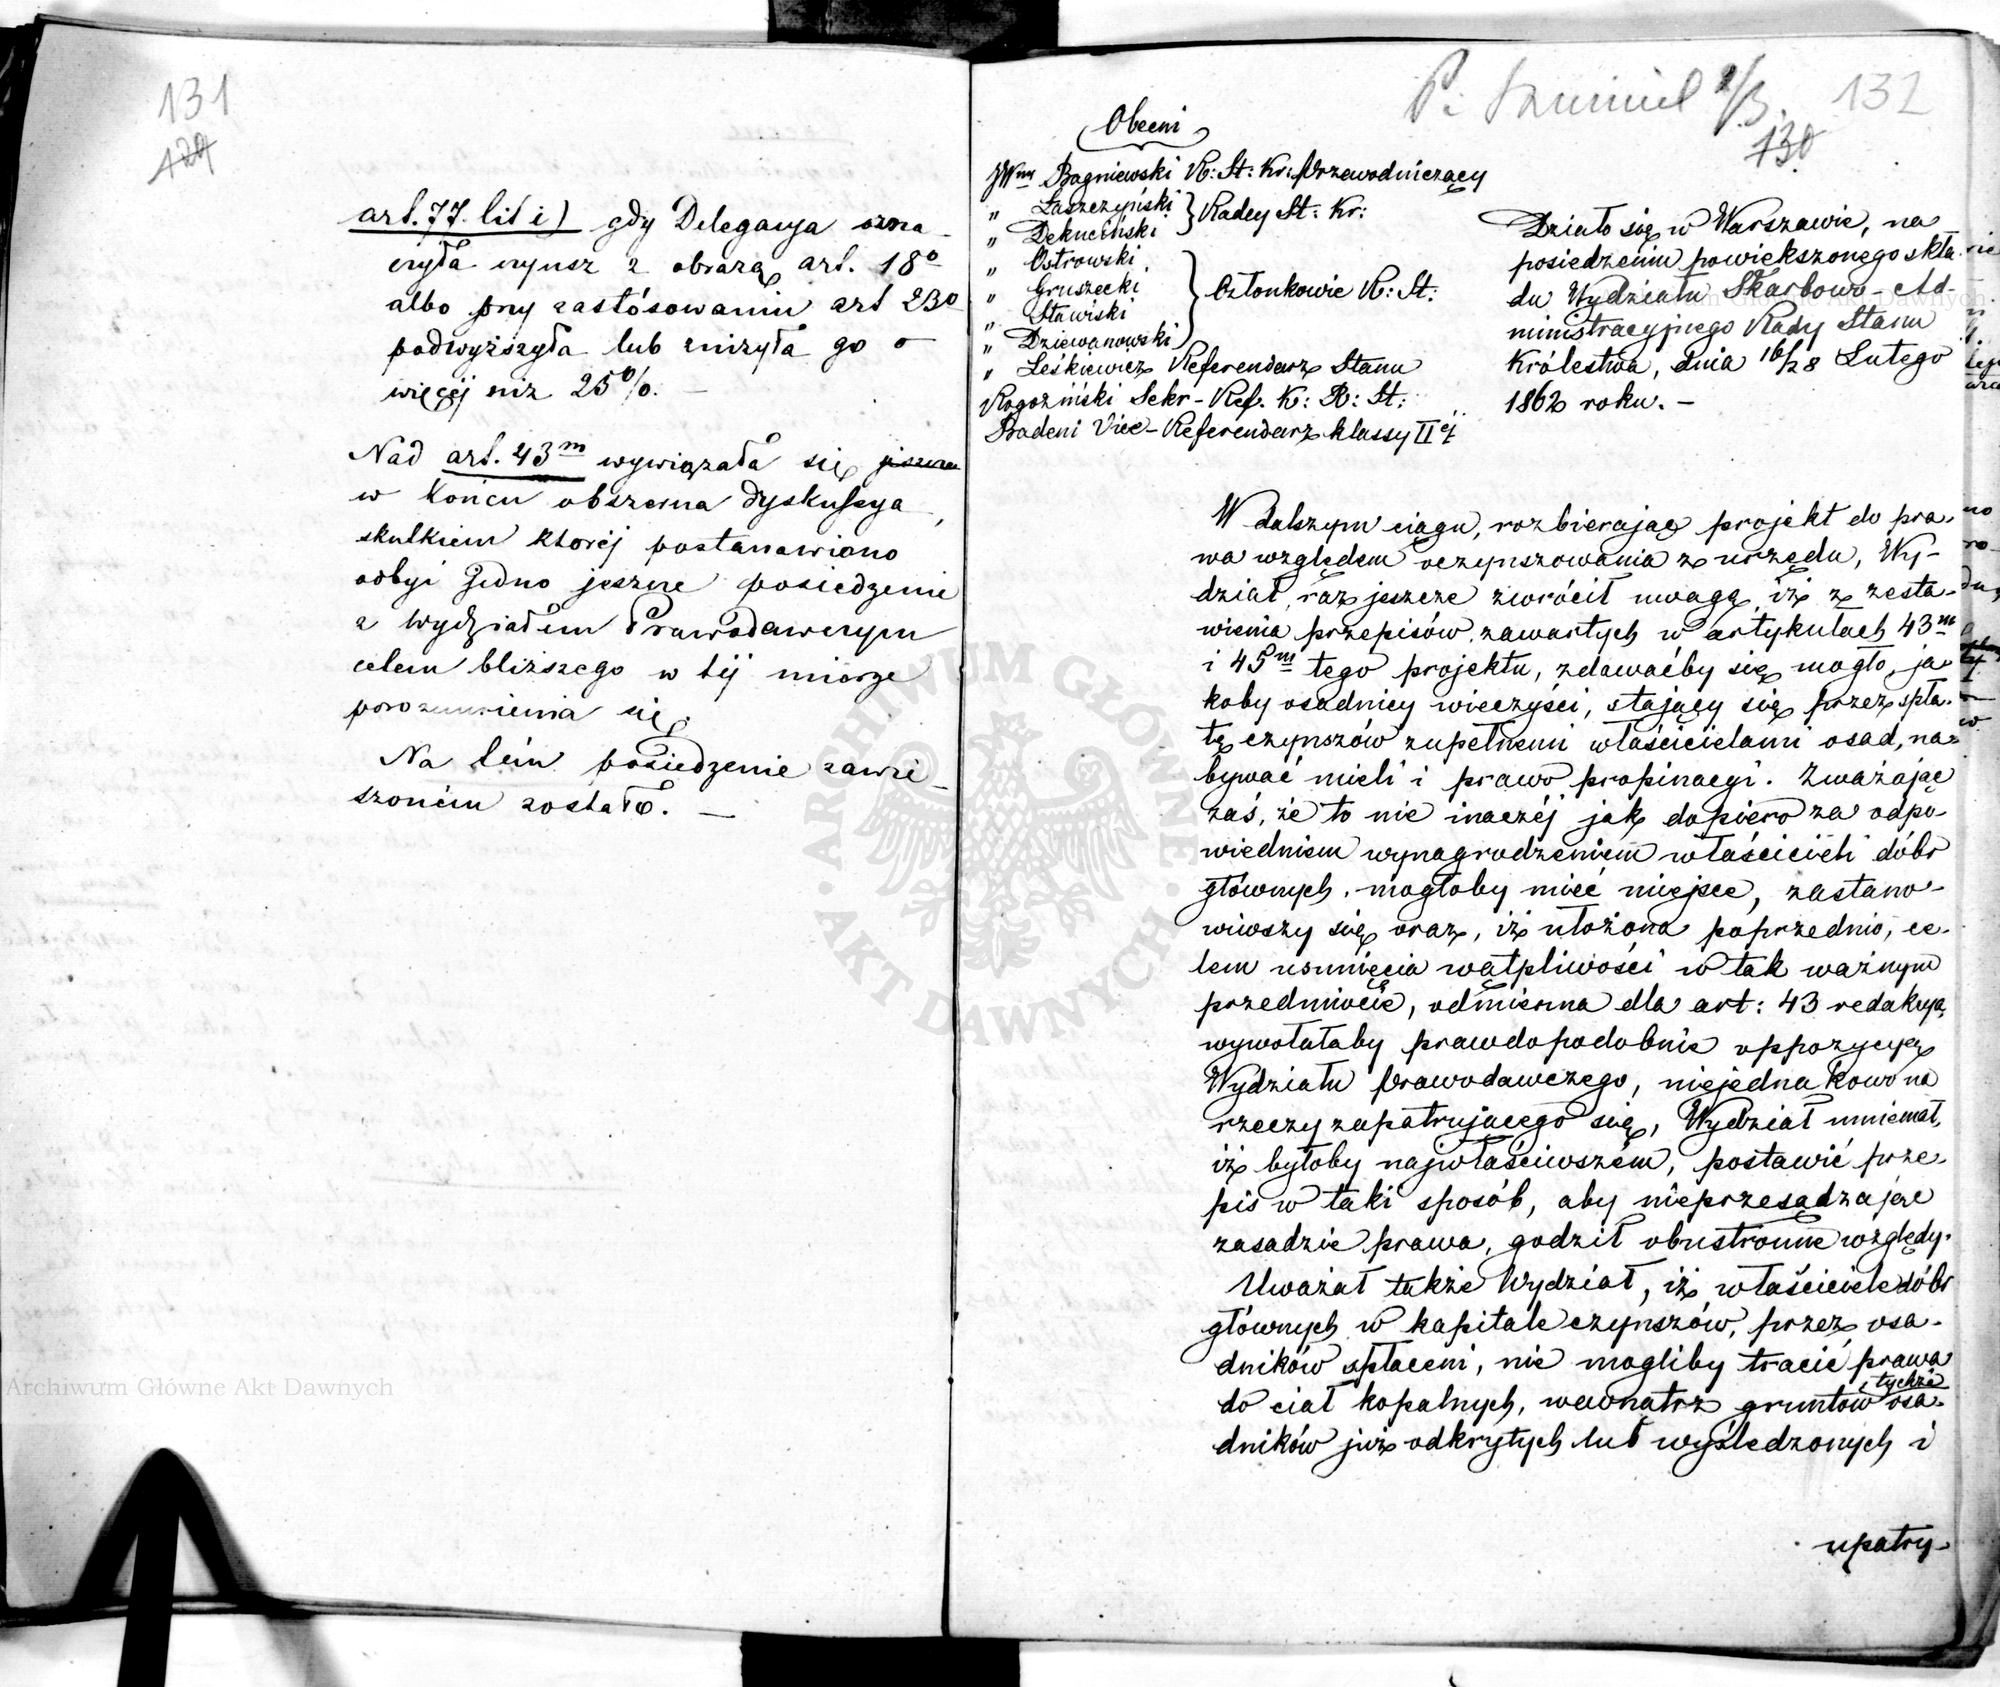 131
129
art. 77. lit i) gdy Delegacya ozna-
czyła czynsz z obrazą art. 18o
albo przy zastósowaniu art 23o
podwyższyła lub zniżyła go o
więcéj niż 25%. —
Nad art. 43m wywiązała się jeszcze
w końcu obszerna dyskussya,
skutkiem któréj postanowiono
odbyć jedno jeszcze posiedzenie
z Wydziałem Prawodawczym
celem bliższego w téj mierze
porozumienia się.
Na tém posiedzenie zawie-
szoném zostało. —
132
130
Obecni
JWny Bagniewski R: St: Kr: Przewodniczący
„ Łaszczyński
„ Dekuciński
Radcy St: Kr:
„ Ostrowski
„ Gruszecki
„ Stawiski
„ Dziewanowski
Członkowie R: St:
„ Leśkiewicz Referendarz Stanu
Rogoziński Sekr-Ref. K: R: St:
Badeni Vice-Referendarz klassy IIéj
Działo się w Warszawie, na
posiedzeniu powiekszonego skła-
du Wydziału Skarbowo-Ad-
ministracyjnego Rady Stanu
Królestwa, dnia 16/28 Lutego
1862 roku. —
W dalszym ciągu, rozbierając projekt do pra-
wa względem oczynszowania z urzędu, Wy-
dział, raz jeszcze zwrócił uwagę, iż z zesta-
wienia przepisów, zawartych w artykułach 43m
i 45m tego projektu, zdawaćby się mogło, ja-
koby osadnicy wieczyści, stający się przez spła-
tę czynszów zupełnemi właścicielami osad, na-
bywać mieli i prawo propinacyi. Zważając
zaś, że to nie inaczéj jak dopiero za odpo-
wiedniem wynagrodzeniem właścicieli dóbr
głównych, mogłoby mieć miejsce, zastano-
wiwszy się oraz, iż ułożona poprzednio, ce-
lem usunięcia wątpliwości w tak ważnym
przedmiocie, odmienna dla art: 43 redakcya,
wywołałaby prawdopodobnie oppozycyę
Wydziału Prawodawczego, niejednakowo na
rzeczy zapatrującego się, Wydział mniemał,
iż byłoby najwłaściwszém, postawić prze-
pis w taki sposób, aby nieprzesądzając
zasadzie prawa, godził obustronne względy.
Uważał także Wydział, iż właściciele dóbr
głównych w kapitale czynszów, przez osa-
dników spłaceni, nie mogliby tracić prawa
do ciał kopalnych, wewnątrz gruntów tychże osa-
dników już odkrytych lub wyśledzonych i
upatry-
ARCHIWUM GŁÓWNE AKT DAWNYCH
Archiwum Główne Akt Dawnych